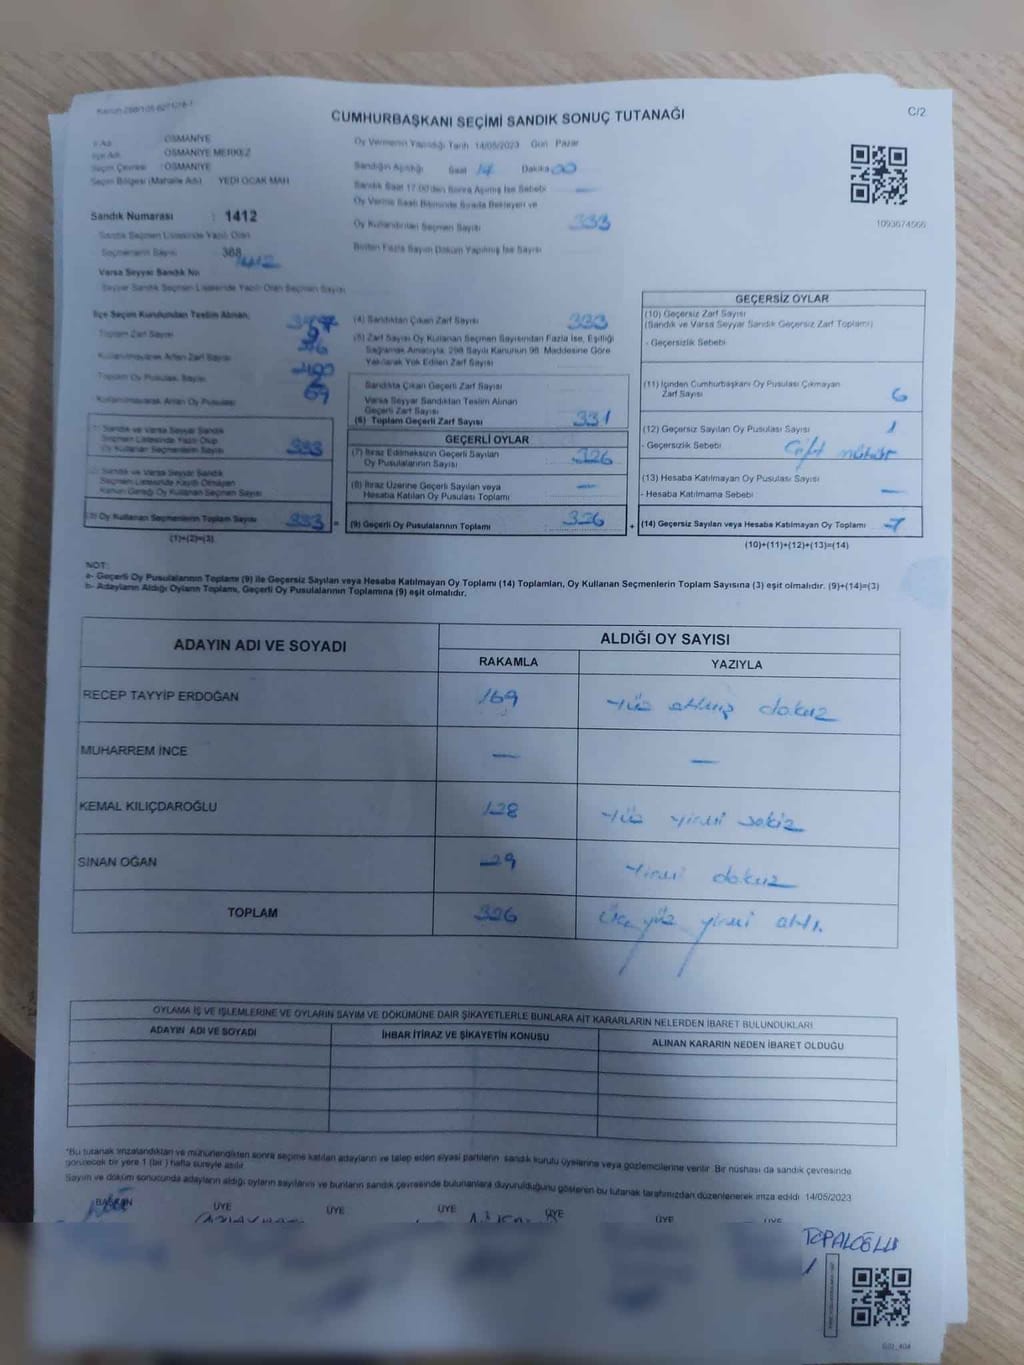 CUMHURBAŞKANI SEÇİMİ SANDIK SONUÇ TUTANAĞI
C/2
İl Adı : OSMANİYE
İlçe Adı : OSMANİYE MERKEZ
Seçim Çevresi : OSMANİYE
Seçim Bölgesi (Mahalle Adı) YEDİ OCAK MAH
Sandık Numarası : 1412
Sandık Seçmen Listesinde Yazılı Olan
Seçmenlerin Sayısı 368
Varsa Seyyar Sandık No
Seyyar Sandık Seçmen Listesinde Yazılı Olan Seçmen Sayısı
Oy Vermenin Yapıldığı Tarih 14/05/2023 Gün Pazar
Sandığın Açıldığı Saat Dakika 00
Sandık Saat 17:00'den Sonra Açılmış İse Sebebi —
Oy Verme Saati Bitiminde Sırada Bekleyen ve
Oy Kullandırılan Seçmen Sayısı 333
Birden Fazla Sayım Döküm Yapılmış İse Sayısı
1093674566
İlçe Seçim Kurulundan Teslim Alınan;
Toplam Zarf Sayısı
Kullanılmayarak Artan Zarf Sayısı
Toplam Oy Pusulası Sayısı
Kullanılmayarak Artan Oy Pusulası 69
(1) Sandık ve Varsa Seyyar Sandık
Seçmen Listesinde Yazılı Olup
Oy Kullanan Seçmenlerin Sayısı 333
(2) Sandık ve Varsa Seyyar Sandık
Seçmen Listesinde Kayıtlı Olmayan
Kanun Gereği Oy Kullanan Seçmen Sayısı
(3) Oy Kullanan Seçmenlerin Toplam Sayısı 333 =
(1)+(2)=(3)
(4) Sandıktan Çıkan Zarf Sayısı 333
(5) Zarf Sayısı Oy Kullanan Seçmen Sayısından Fazla İse, Eşitliği
Sağlamak Amacıyla, 298 Sayılı Kanunun 98. Maddesine Göre
Yakılarak Yok Edilen Zarf Sayısı
Sandıkta Çıkan Geçerli Zarf Sayısı
Varsa Seyyar Sandıktan Teslim Alınan
Geçerli Zarf Sayısı
(6) Toplam Geçerli Zarf Sayısı 331
GEÇERLİ OYLAR
(7) İtiraz Edilmeksizin Geçerli Sayılan
Oy Pusulalarının Sayısı 326
(8) İtiraz Üzerine Geçerli Sayılan veya
Hesaba Katılan Oy Pusulası Toplamı —
(9) Geçerli Oy Pusulalarının Toplamı 326 +
GEÇERSİZ OYLAR
(10) Geçersiz Zarf Sayısı
(Sandık ve Varsa Seyyar Sandık Geçersiz Zarf Toplamı)
- Geçersizlik Sebebi
(11) İçinden Cumhurbaşkanı Oy Pusulası Çıkmayan
Zarf Sayısı 6
(12) Geçersiz Sayılan Oy Pusulası Sayısı 1
- Geçersizlik Sebebi Çift mühür
(13) Hesaba Katılmayan Oy Pusulası Sayısı
- Hesaba Katılmama Sebebi —
(14) Geçersiz Sayılan veya Hesaba Katılmayan Oy Toplamı 7
(10)+(11)+(12)+(13)=(14)
NOT:
a- Geçerli Oy Pusulalarının Toplamı (9) ile Geçersiz Sayılan veya Hesaba Katılmayan Oy Toplamı (14) Toplamları, Oy Kullanan Seçmenlerin Toplam Sayısına (3) eşit olmalıdır. (9)+(14)=(3)
b- Adayların Aldığı Oyların Toplamı, Geçerli Oy Pusulalarının Toplamına (9) eşit olmalıdır.
ADAYIN ADI VE SOYADI
ALDIĞI OY SAYISI
RAKAMLA YAZIYLA
RECEP TAYYİP ERDOĞAN 169 yüz altmış dokuz
MUHARREM İNCE — —
KEMAL KILIÇDAROĞLU 128 yüz yirmi sekiz
SİNAN OĞAN 29 yirmi dokuz
TOPLAM 326 üç yüz yirmi altı.
OYLAMA İŞ VE İŞLEMLERİNE VE OYLARIN SAYIM VE DÖKÜMÜNE DAİR ŞİKAYETLERLE BUNLARA AİT KARARLARIN NELERDEN İBARET BULUNDUKLARI
ADAYIN ADI VE SOYADI İHBAR İTİRAZ VE ŞİKAYETİN KONUSU ALINAN KARARIN NEDEN İBARET OLDUĞU
*Bu tutanak imzalandıktan ve mühürlendikten sonra seçime katılan adayların ve talep eden siyasi partilerin sandık kurulu üyelerine veya gözlemcilerine verilir. Bir nüshası da sandık çevresinde
görülecek bir yere 1 (bir) hafta süreyle asılır.
Sayım ve döküm sonucunda adayların aldığı oyların sayılarını ve bunların sandık çevresinde bulunanlara duyurulduğunu gösteren bu tutanak tarafımızdan düzenlenerek imza edildi. 14/05/2023
BAŞKAN ÜYE ÜYE ÜYE ÜYE ÜYE ÜYE
TOPALOĞLU